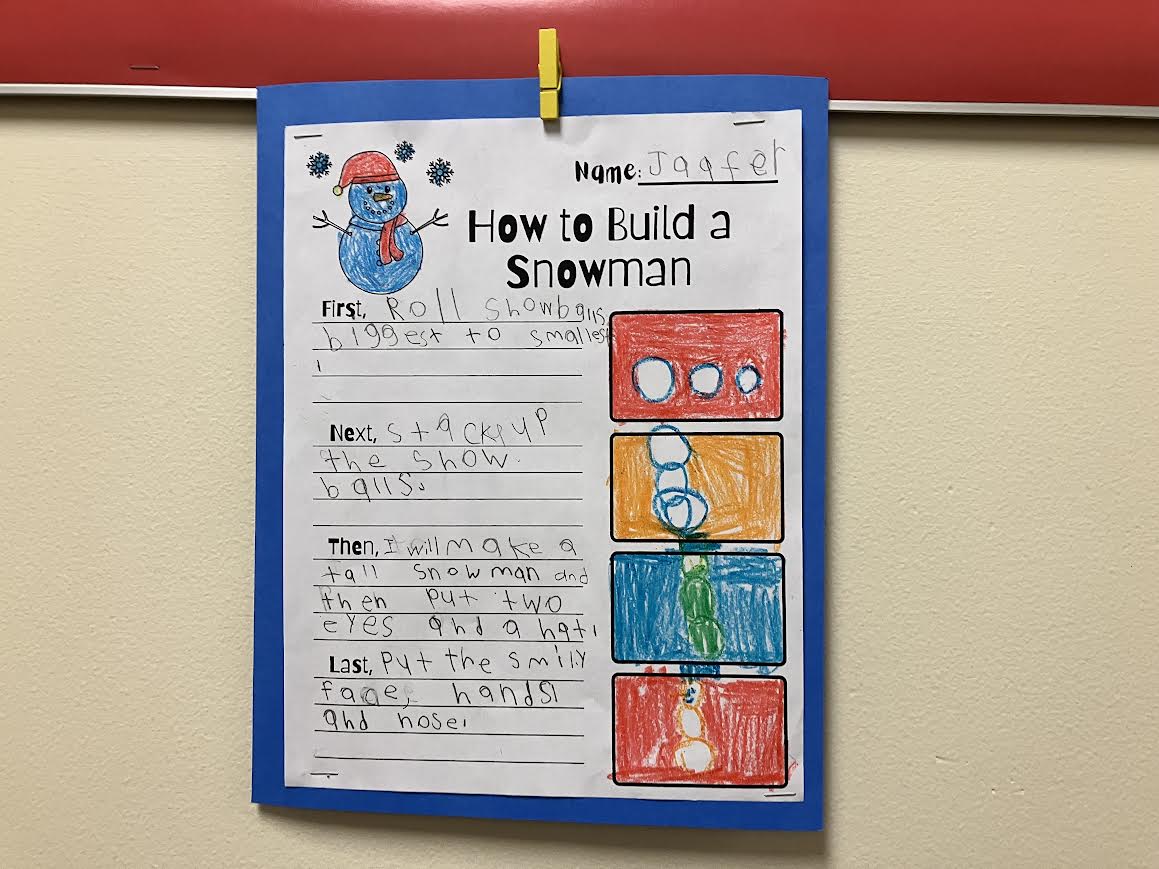 Name: Jaafer
How to Build a
Snowman
First, Roll Snowballs
biggest to smallest
.
Next, stack up
the snow.
balls.
Then, It will make a
tall snowman and
then put two
eyes and a hat.
Last, put the smily
face, hands,
and nose.